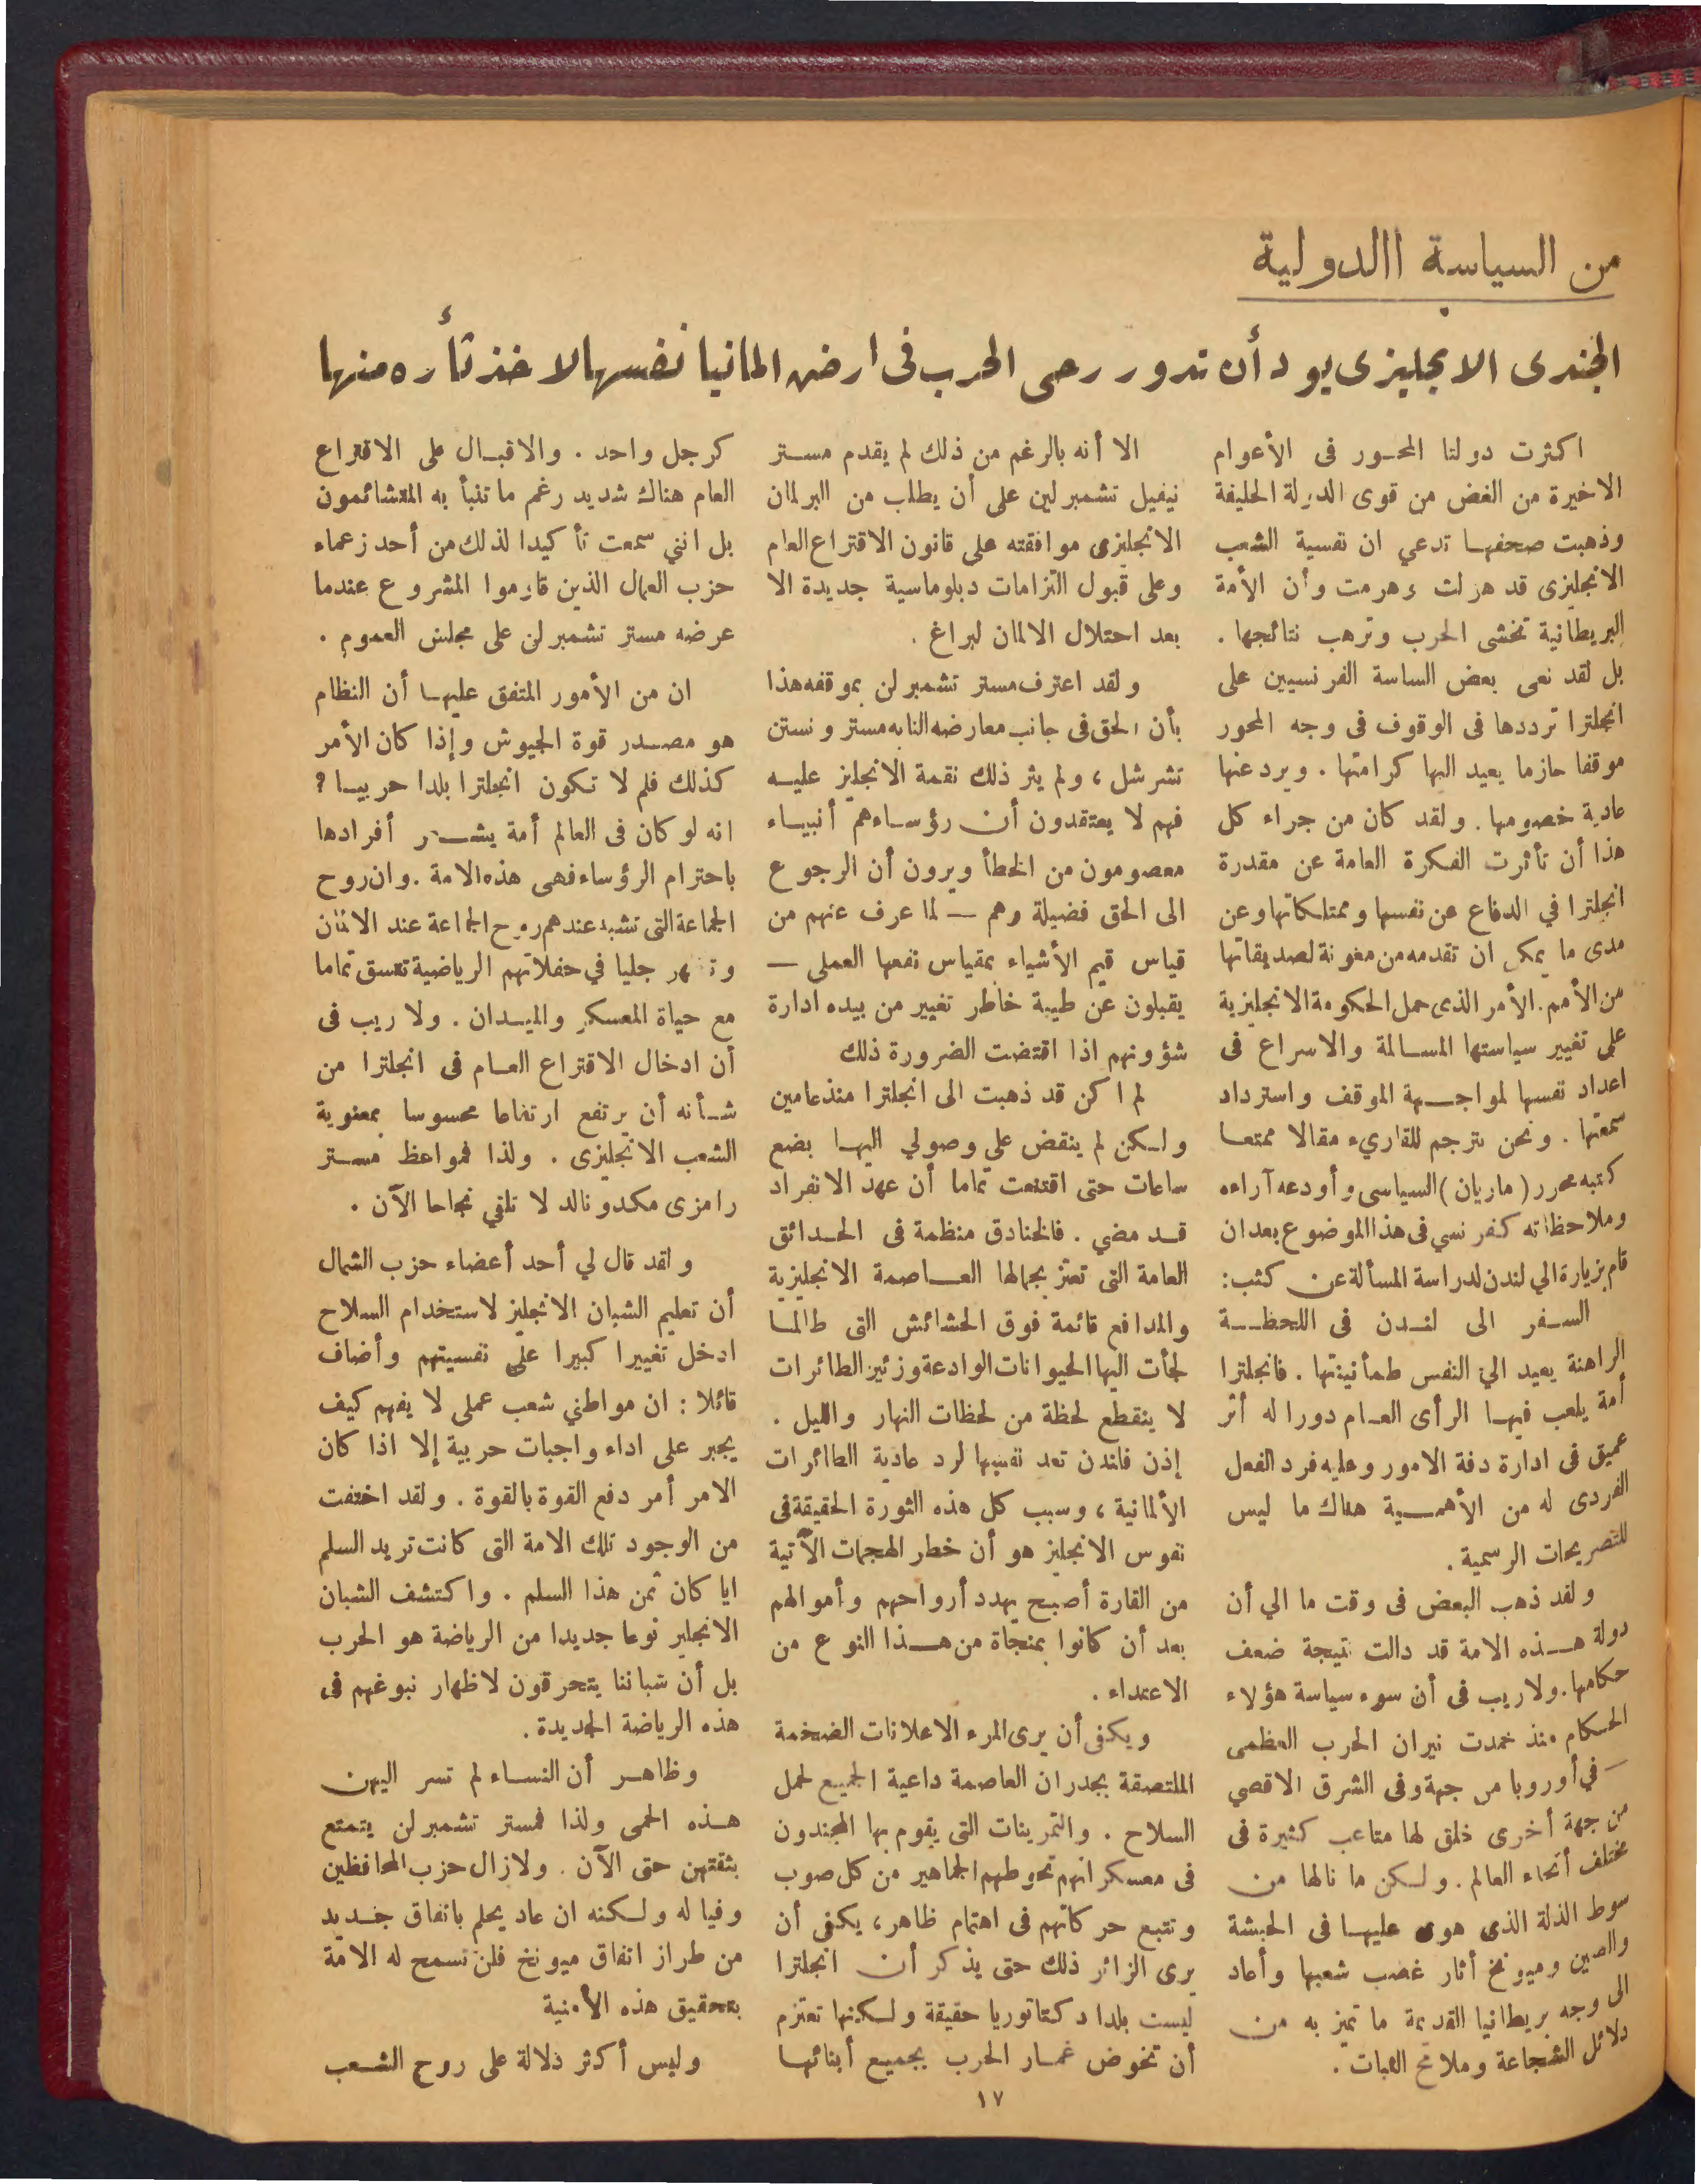 من السياسة االدولية
الجندى الانجليزى يود أن تدور رحى الحرب فى ارض المانيا نفسها لاخذ ثأره منها
اكثرت دولتا المحور فى الأعوام
الاخيرة من الغض من قوى الدولة الحليفة
وذهبت صحفها تدعي ان نفسية الشعب
الانجليزى قد هزلت وهرمت وأن الأمة
البريطانية تخشى الحرب وترهب نتائجها .
بل لقد نعى بعض الساسة الفرنسيين على
انجلترا ترددها فى الوقوف فى وجه المحور
موقفا حازما يعيد اليها كرامتها . ويرد عنها
عادية خصومها . ولقد كان من جراء كل
هذا أن تأثرت الفكرة العامة عن مقدرة
انجلترا في الدفاع عن نفسها وممتلكاتها وعن
مدى ما يمكن ان تقدمه من معونة لصديقاتها
من الأمم . الأمر الذى حمل الحكومة الانجليزية
على تغيير سياستها المسالمة والاسراع فى
اعداد نفسها لمواجهة الموقف واسترداد
سمعتها . ونحن نترجم للقاريء مقالا ممتعا
كتبه محرر ( ماريان ) السياسى وأودعه آراءه
وملاحظاته كفرنسي فى هذا الموضوع بعد ان
قام بزيارة الي لندن لدراسة المسألة عن كثب :
السفر الى لندن فى اللحظة
الراهنة يعيد الي النفس طمأنينتها . فانجلترا
أمة يلعب فيها الرأى العام دورا له أثر
عميق فى ادارة دفة الامور وعليه فرد الفعل
الفردى له من الأهمية هناك ما ليس
للتصريحات الرسمية .
ولقد ذهب البعض فى وقت ما الي أن
دولة هذه الامة قد دالت نتيجة ضعف
حكامها . ولاريب فى أن سوء سياسة هؤلاء
الحكام منذ خمدت نيران الحرب العظمى
— في أوروبا من جهة وفى الشرق الاقصي
من جهة أخرى خلق لها متاعب كثيرة فى
مختلف أنحاء العالم . ولكن ما نالها من
سوط الذلة الذى هوى عليها فى الحبشة
والصين وميونخ أثار غضب شعبها وأعاد
الى وجه بريطانيا القديمة ما تميز به من
دلائل الشجاعة وملامح الثبات .
الا أنه بالرغم من ذلك لم يقدم مستر
نيفيل تشمبرلين على أن يطلب من البرلمان
الانجليزى موافقته على قانون الاقتراع العام
وعلى قبول التزامات دبلوماسية جديدة الا
بعد احتلال الالمان لبراغ .
ولقد اعترف مستر تشمبرلن بموقفه هذا
بأن الحق فى جانب معارضه النابه مستر ونستن
تشرشل ، ولم يثر ذلك نقمة الانجليز عليه
فهم لا يعتقدون أن رؤساءهم أنبياء
معصومون من الخطأ ويرون أن الرجوع
الى الحق فضيلة وهم — لما عرف عنهم من
قياس قيم الأشياء بمقياس نفعها العملى —
يقبلون عن طيبة خاطر تغيير من بيده ادارة
شؤونهم اذا اقتضت الضرورة ذلك
لم اكن قد ذهبت الى انجلترا منذ عامين
ولكن لم ينقض على وصولي اليها بضع
ساعات حتى اقتنعت تماما أن عهد الانفراد
قد مضي . فالخنادق منظمة فى الحدائق
العامة التى تعتز بجمالها العاصمة الانجليزية
والمدافع قائمة فوق الحشائش التى طالما
لجأت اليها الحيوانات الوادعة وزئير الطائرات
لا ينقطع لحظة من لحظات النهار والليل .
إذن فلندن تعد نفسها لرد عادية الطائرات
الألمانية ، وسبب كل هذه الثورة الحقيقة فى
نفوس الانجليز هو أن خطر الهجمات الآتية
من القارة أصبح يهدد أرواحهم وأموالهم
بعد أن كانوا بمنجاة من هذا النوع من
الاعتداء .
ويكفى أن يرى المرء الاعلانات الضخمة
الملتصقة بجدران العاصمة داعية الجميع لحمل
السلاح . والتمرينات التى يقوم بها المجندون
فى معسكراتهم تحوطهم الجماهير من كل صوب
وتتبع حركاتهم فى اهتمام ظاهر ، يكفى أن
يرى الزائر ذلك حتى يذكر أن انجلترا
ليست بلدا دكتاتوريا حقيقة ولكنها تعتزم
أن تخوض غمار الحرب بجميع أبنائها
كرجل واحد . والاقبال على الاقتراع
العام هناك شديد رغم ما تنبأ به المتشائمون
بل انني سمعت تأكيدا لذلك من أحد زعماء
حزب العمال الذين قاوموا المشروع عندما
عرضه مستر تشمبرلن على مجلس العموم .
ان من الأمور المتفق عليها أن النظام
هو مصدر قوة الجيوش وإذا كان الأمر
كذلك فلم لا تكون انجلترا بلدا حربيا ؟
انه لو كان فى العالم أمة أفرادها
باحترام الرؤساء فهى هذه الامة . وان روح
الجماعة التى تشبه عندهم روح الجماعة عند الالمان
وتظهر جليا في حفلاتهم الرياضية تتسق تماما
مع حياة المعسكر والميدان . ولا ريب فى
أن ادخال الاقتراع العام فى انجلترا من
شأنه أن يرتفع ارتفاعا محسوسا بمعنوية
الشعب الانجليزى . ولذا فمواعظ مستر
رامزى مكدونالد لا تلقي نجاحا الآن .
ولقد قال لي أحد أعضاء حزب الشمال
أن تعليم الشبان الانجليز لاستخدام السلاح
ادخل تغييرا كبيرا على نفسيتهم وأضاف
قائلا : ان مواطني شعب عملى لا يفهم كيف
يجبر على اداء واجبات حربية إلا اذا كان
الامر أمر دفع القوة بالقوة . ولقد اختفت
من الوجود تلك الامة التى كانت تريد السلم
ايا كان ثمن هذا السلم . واكتشف الشبان
الانجليز نوعا جديدا من الرياضة هو الحرب
بل أن شباننا يتحرقون لاظهار نبوغهم فى
هذه الرياضة الجديدة .
وظاهر أن النساء لم تسر اليهن
هذه الحمى ولذا فمستر تشمبرلن يتمتع
بثقتهن حتى الآن . ولازال حزب المحافظين
وفيا له ولكنه ان عاد يحلم باتفاق جديد
من طراز اتفاق ميونخ فلن تسمح له الامة
بتحقيق هذه الأمنية
وليس أكثر دلالة على روح الشعب
١٧